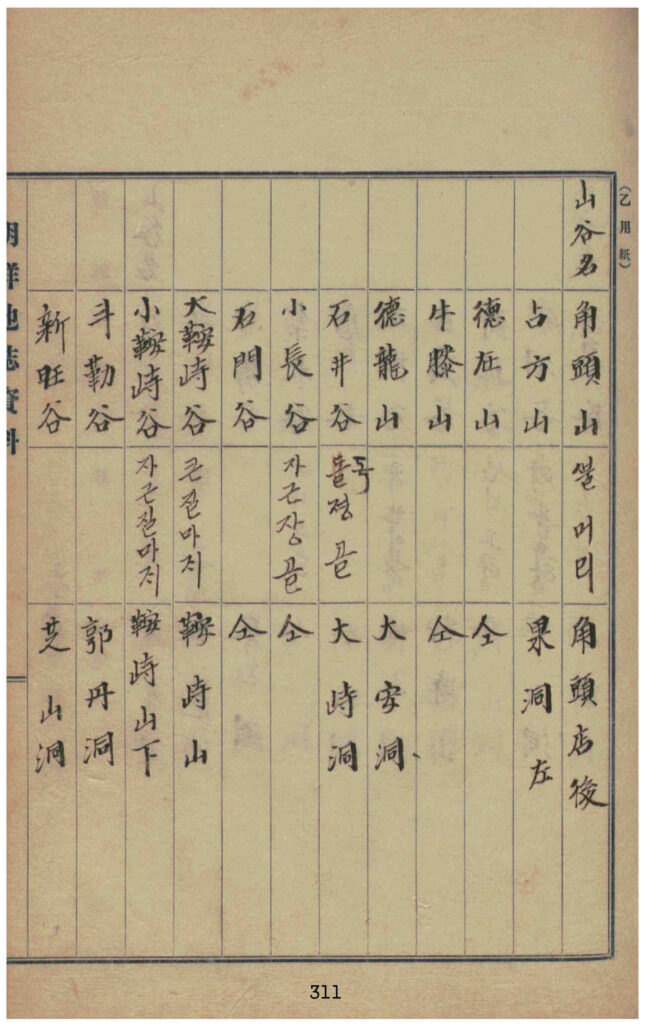 (乙用紙)
山谷名 角頭山 쌀머리 角頭店後
占方山 果洞左
德旺山 仝
牛膝山 仝
德龍山 大安洞
石井谷 돌졍골 독 大峙洞
小長谷 자근장골 仝
石門谷 仝
大鞍峙谷 큰질마지 鞍峙山
小鞍峙谷 자근질마지 鞍峙山下
斗勒谷 郭丹洞
新旺谷 芝山洞
朝鮮地誌資料
311